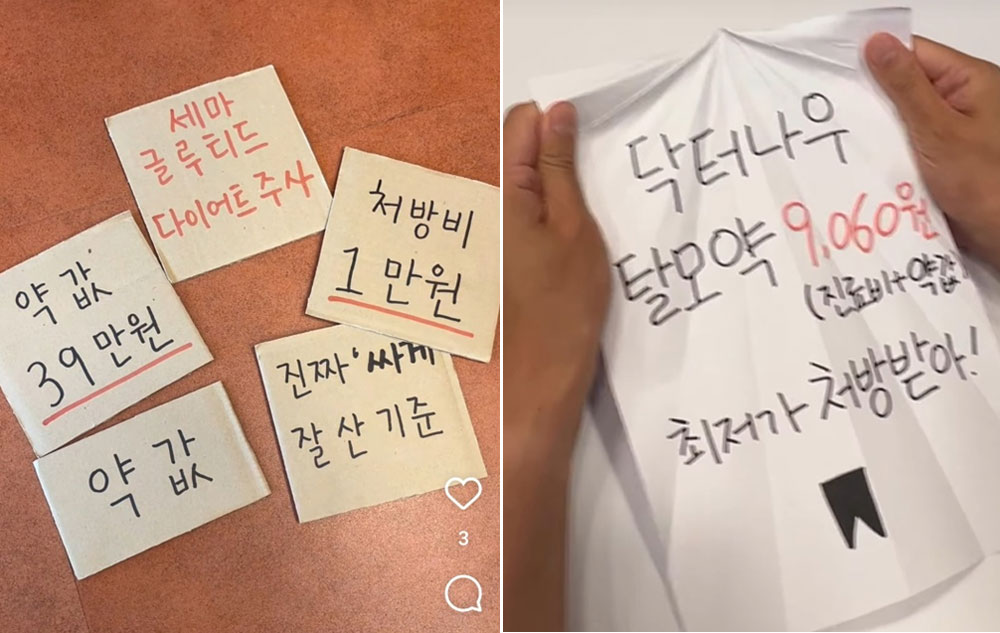 세마
글루티드
다이어트 주사
처방비
1만원
약값
39만원
진짜 '싸게
잘 산 기준
약값
3
닥터나우
탈모약 9,060원
(진료비+약값)
최저가 처방받아!